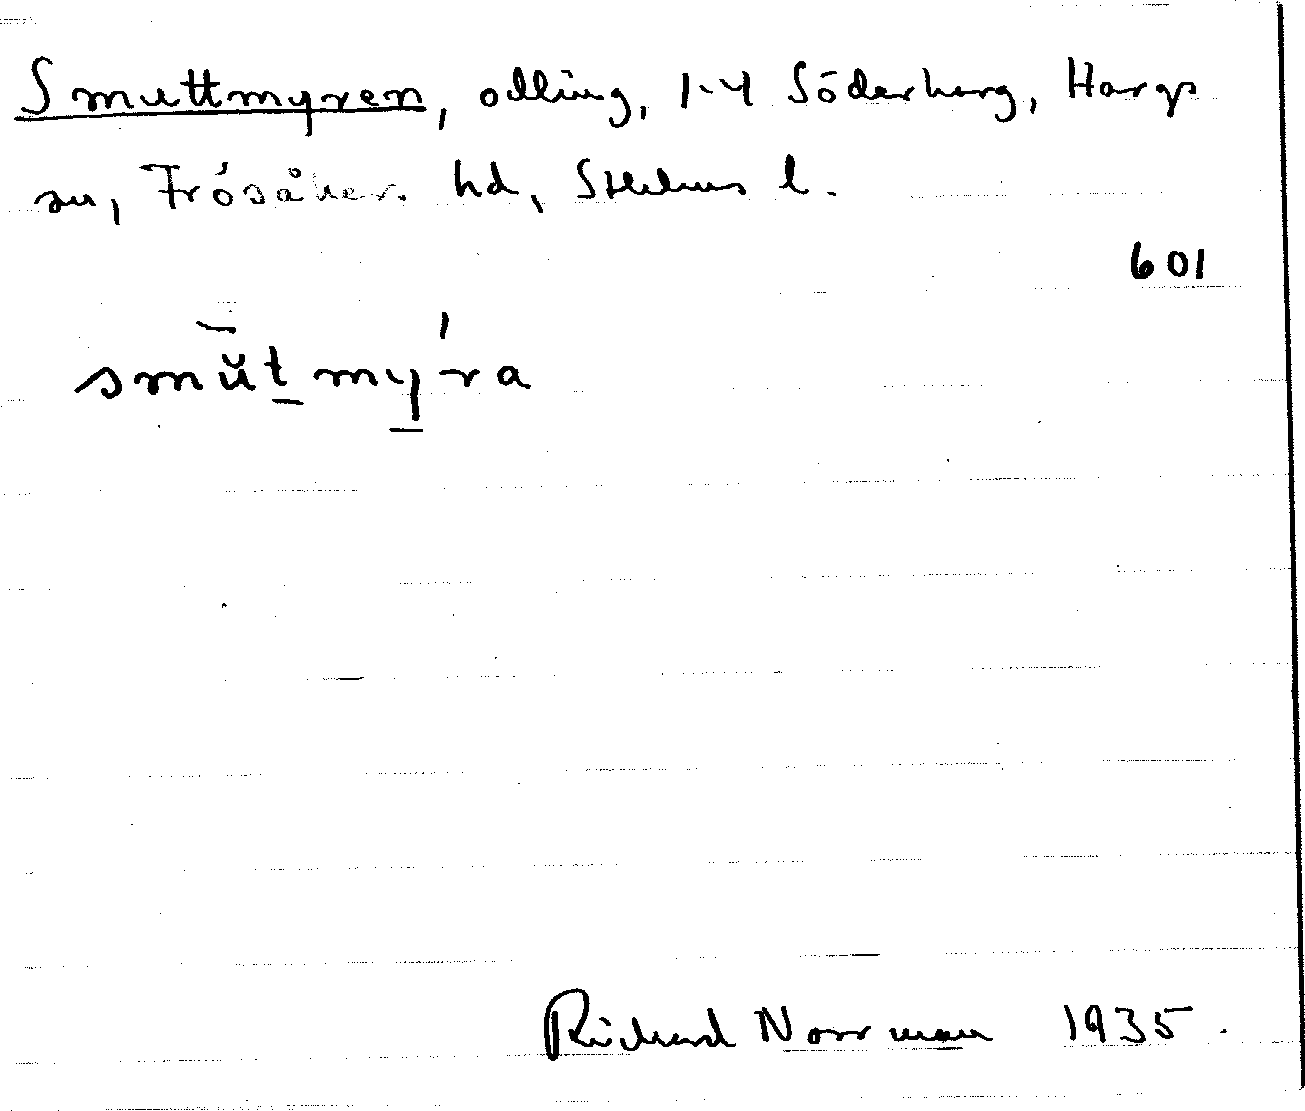 Smuttmyren, odling, 1-4 Söderberg, Hargs
sn, Frösåker. hd, Sthlms l.
601
smŭtmyra
Richard Norrman 1935.